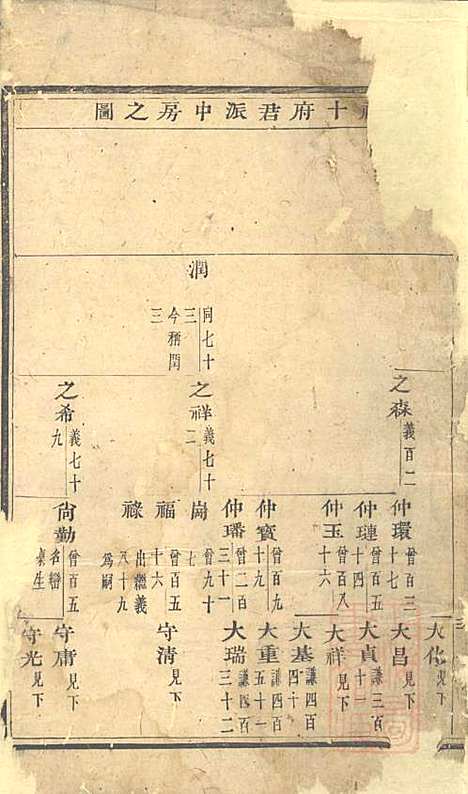 十府君派中房之圖
潤 同七十三 今稱閏三
之森 義百二
之祥 義七十二
之希 義七十九
仲環 曾百三十七
仲璉 曾百五十四
仲玉 曾百八十六
仲寳 曾百九十九
仲璠 曾二百三十一
崗 曾九十七
福 曾百五十六
祿 出繼義八十九為嗣
尙勤 曾百五 名巒 桌生
大化 見下
大昌 見下
大貞 謙三百十一
大祥 見下
大基 謙四百四十
大重 謙四百五十一
大瑞 謙四百三十二
守清 見下
守庸 見下
守光 見下